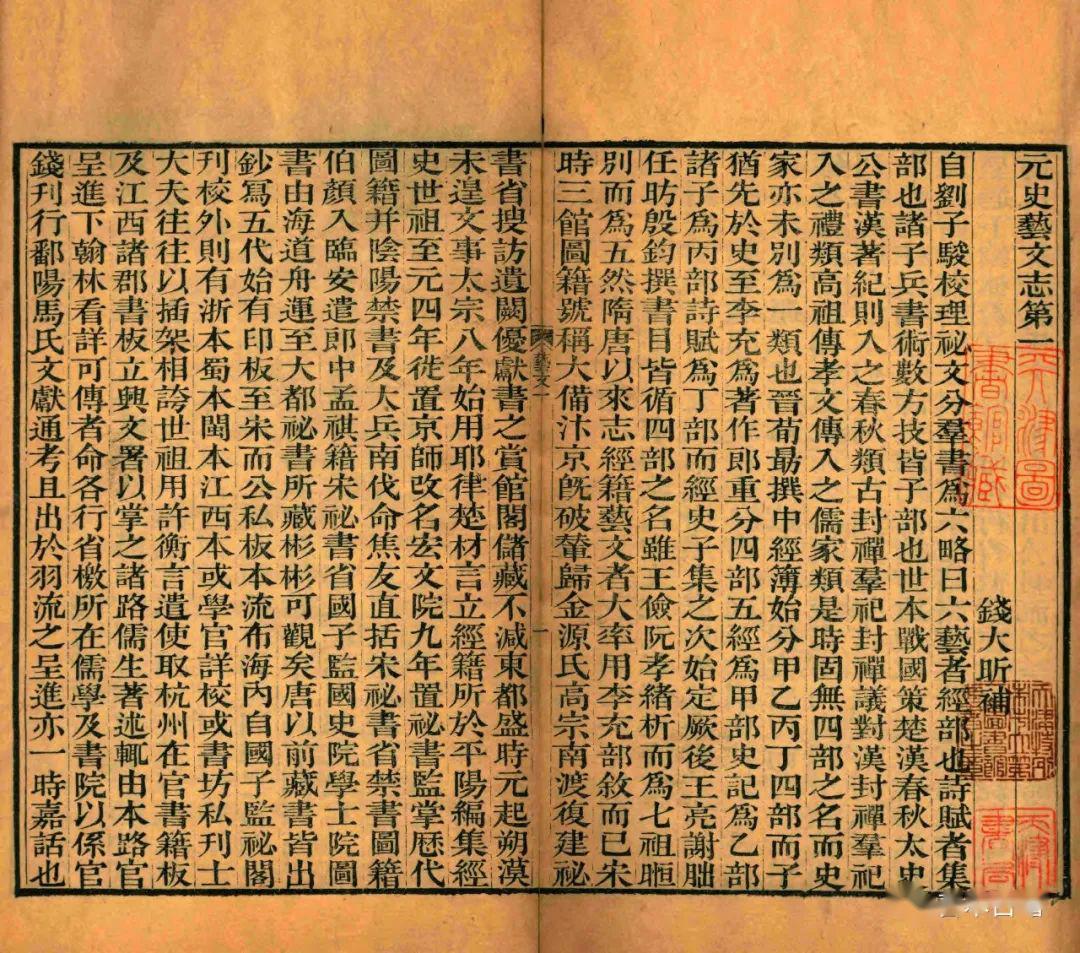 元史藝文志第一
錢大昕補
自劉子駿校理祕文分羣書爲六略曰六藝者經部也詩賦者集
部也諸子兵書術數方技皆子部也世本戰國策楚漢春秋太史
公書漢著紀則入之春秋類古封禪羣祀封禪議對漢封禪羣祀
入之禮類高祖傳孝文傳入之儒家類是時固無四部之名而史
家亦未別爲一類也晉荀勗撰中經簿始分甲乙丙丁四部而子
猶先於史至李充爲著作郎重分四部五經爲甲部史記爲乙部
諸子爲丙部詩賦爲丁部而經史子集之次始定厥後王亮謝朏
任昉殷鈞撰書目皆循四部之名雖王儉阮孝緒析而爲七祖暅
別而爲五然隋唐以來志經籍藝文者大率用李充部敘而已宋
時三館圖籍號稱大備汴京旣破輦歸金源氏高宗南渡復建祕
藝文一
一
書省搜訪遺闕優獻書之賞館閣儲藏不減東都盛時元起朔漠
未遑文事太宗八年始用耶律楚材言立經籍所於平陽編集經
史世祖至元四年徙置京師改名宏文院九年置祕書監掌歷代
圖籍并陰陽禁書及大兵南伐命焦友直括宋祕書省禁書圖籍
伯顏入臨安遣郎中孟祺籍宋祕書省國子監國史院學士院圖
書由海道舟運至大都祕書所藏彬彬可觀矣唐以前藏書皆出
鈔寫五代始有印板至宋而公私板本流布海內自國子監祕閣
刊校外則有浙本蜀本閩本江西本或學官詳校或書坊私刊士
大夫往往以插架相誇世祖用許衡言遣使取杭州在官書籍板
及江西諸郡書板立興文署以掌之諸路儒生著述輒由本路官
呈進下翰林看詳可傳者命各行省檄所在儒學及書院以係官
錢刊行鄱陽馬氏文獻通考且出於羽流之呈進亦一時嘉話也
天津圖
書館藏